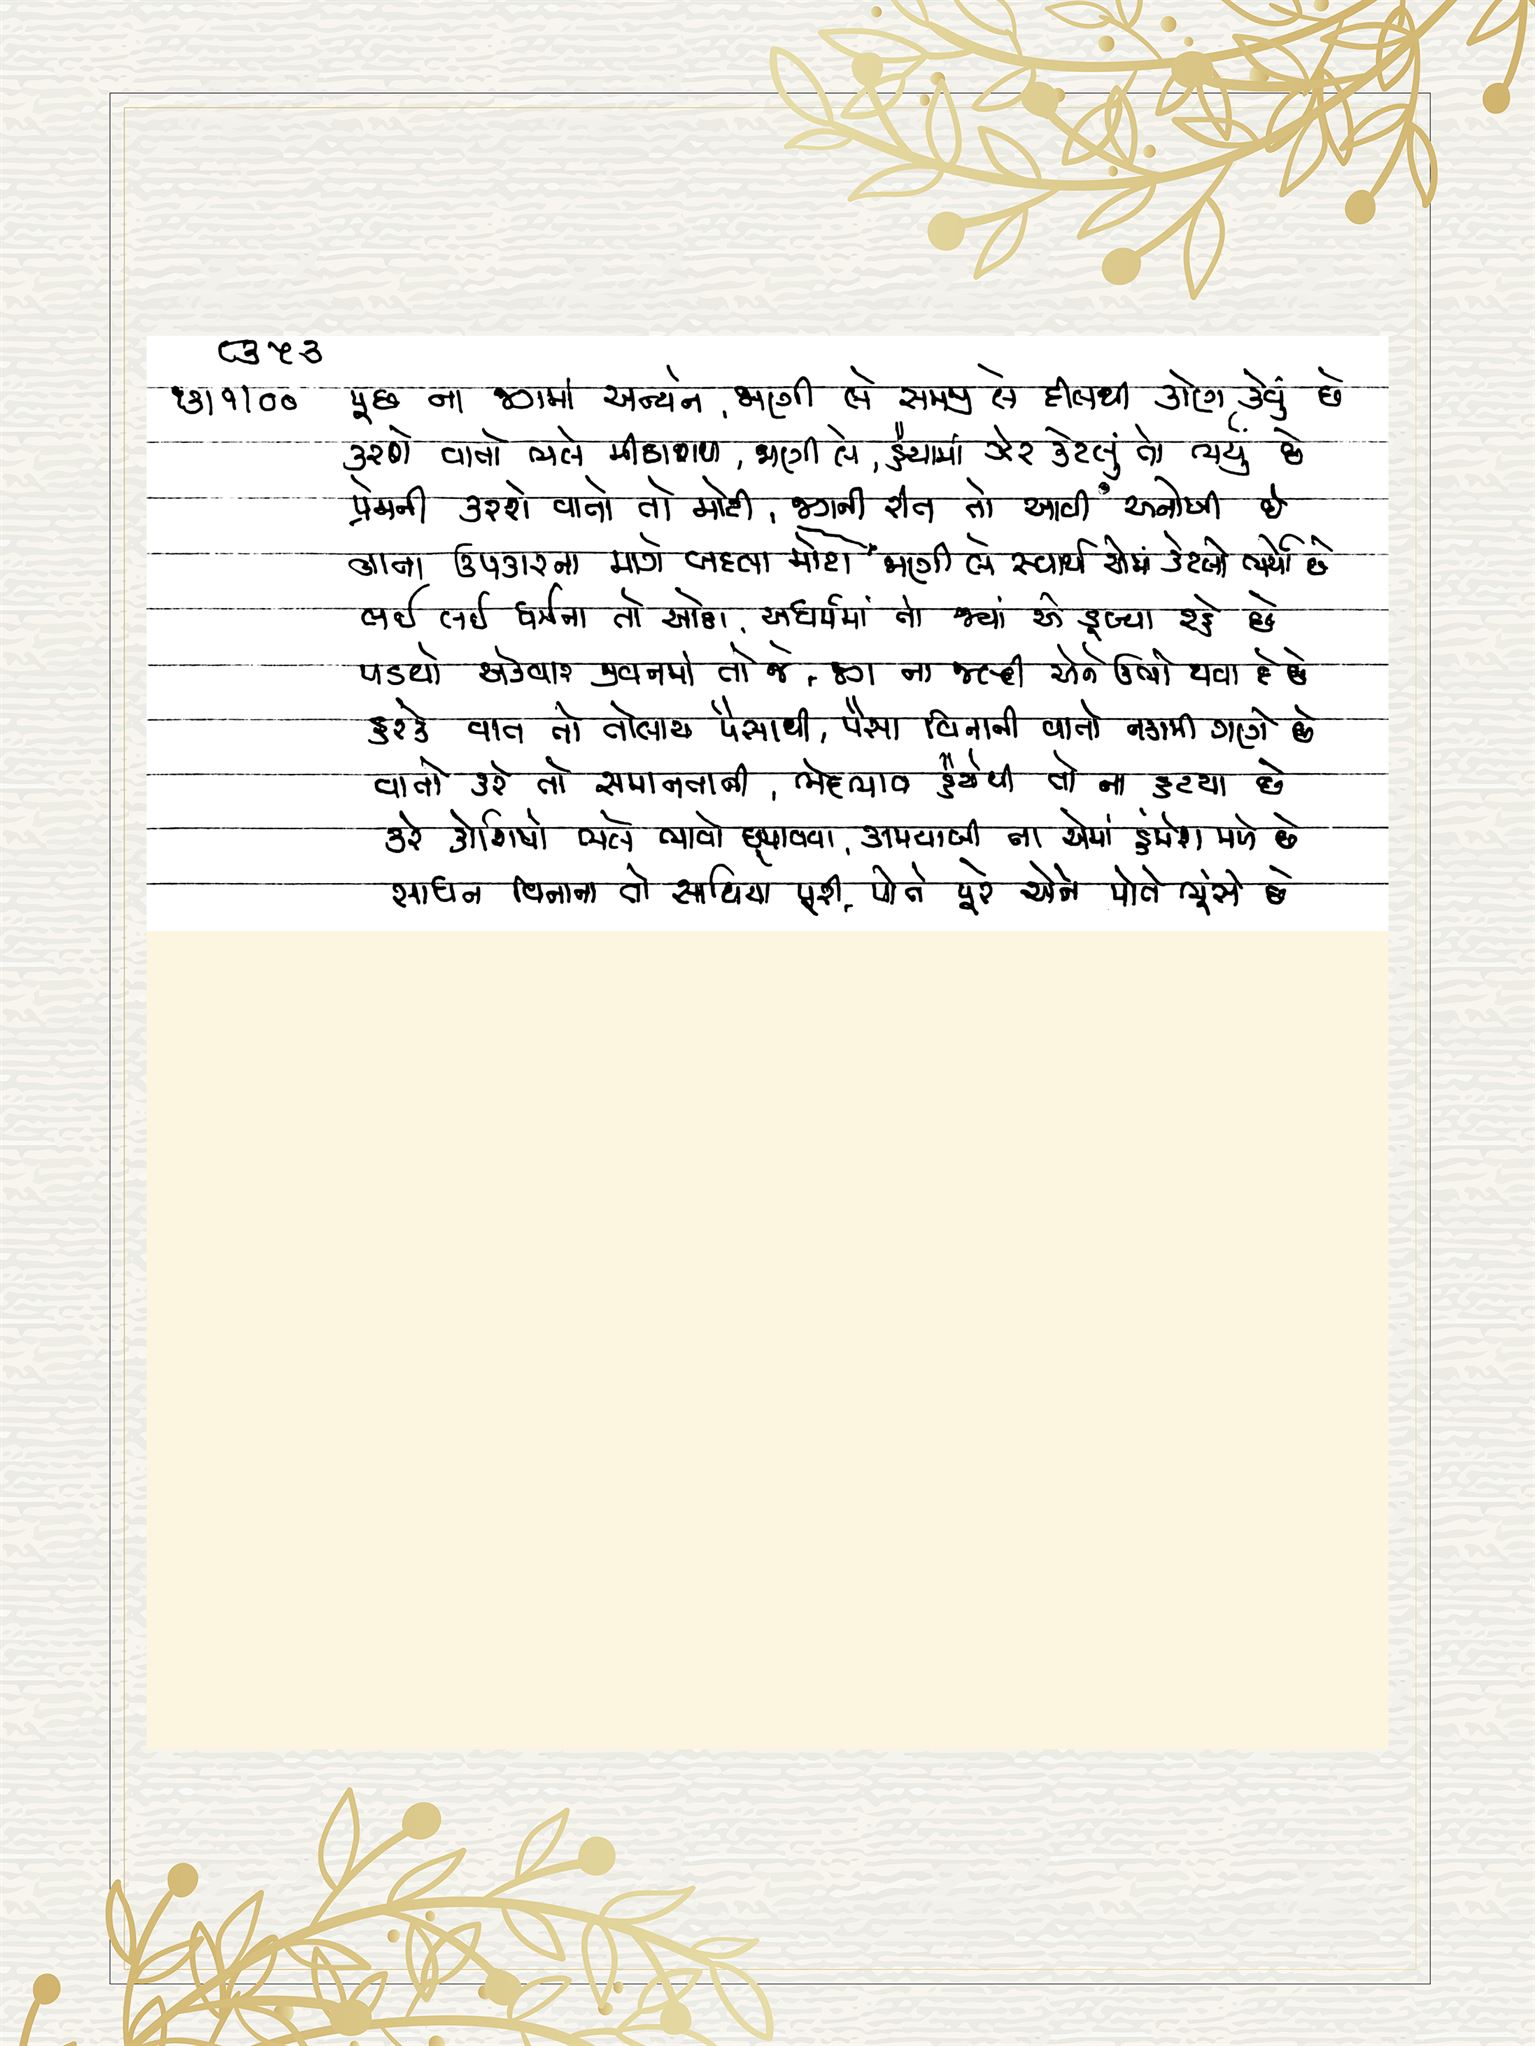 ૮૩૫૩
૧૩/૧/૦૦ પૂછ ના જગમાં અન્યને, જાણી લે સમજી લે દીલથી કોણ કેવું છે
કરશે વાતો ભલે મીઠાશભરી, જાણી લે, હૈયામાં ઝેર કેટલું તો ભર્યું છે
પ્રેમની કરશે વાતો તો મોટી, જગની રીત તો આવી અનોખી છે
નાના ઉપકારના માગે બદલા મોટા જાણી લે સ્વાર્થ એમાં કેટલો ભર્યો છે
લઈ લઈ ધર્મના તો ઓઠા, અધર્મમાં તો જ્યાં એ ડૂબ્યા રહે છે
પડયો એકવાર જીવનમાં તો જે, જગ ના જલ્દી એને ઉભો થવા દે છે
હરકે વાત તો તોલાય પૈસાથી, પૈસા વિનાની વાતો નકામી ગણે છે
વાતો કરે તો સમાનતાની, ભેદભાવ હૈયેથી તો ના હટયા છે
કરે કોશિષો ભલે ભાવો છુપાવવા, કામયાબી ના એમાં હંમેશ મળે છે
સાધન વિનાના તો સાથિયા પૂરી, પોતે પૂરે એને પોતે ભૂંસે છે